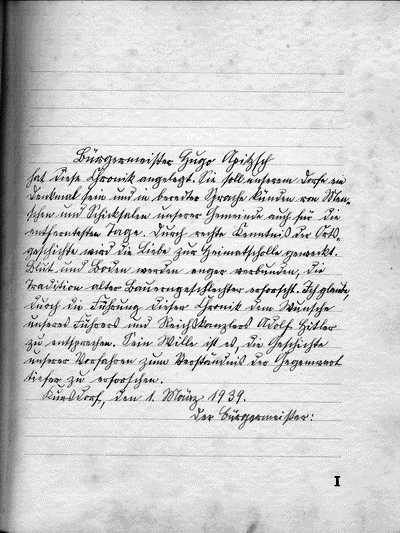 Bürgermeister Hugo Apitzsch
hat diese Chronik angelegt. Sie soll unserem Dorfe ein
Denkmal sein und in beredter Sprache künden von Men-
schen und Schicksalen unserer Gemeinde auch für die
entferntesten Tage. Durch rechte Kenntnis der Orts-
geschichte wird die Liebe zur Heimatscholle geweckt.
Blut und Boden werden enger verbunden, die
Tradition alter Bauerngeschlechter erforscht. Ich glaube,
durch die Führung dieser Chronik dem Wunsche
unseres Führers und Reichskanzlers Adolf Hitler
zu entsprechen. Sein Wille ist es, die Geschichte
unserer Vorfahren zum Verständnis der Gegenwart
tiefer zu erforschen.
Kursdorf, den 1. März 1939.
Der Bürgermeister:
I